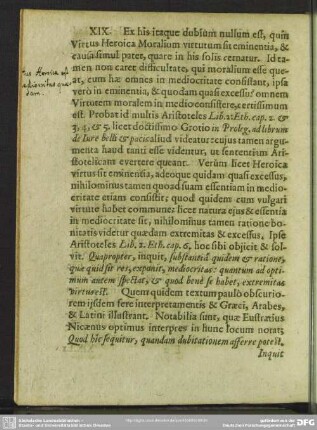 XIX. Ex his itaque dubium nullum est, quin
Virtus Heroica Moralium virtutum sit eminentia, &
causa simul patet, quare in his solis cernatur. Id ta-
men non caret difficultate, qui moralium esse que-
at, cum hæ omnes in mediocritate consistant, ipsa
vero in eminentia, & quodam quasi excessu: omnem
Virtutem moralem in medio consistere, certissimum
est. Probat id multis Aristoteles Lib. 2. Eth. cap. 2. &
3, 4, & 5. licet doctissimo Grotio in Proleg. ad librum
de Jure belli & pacis aliud videatur cujus tamen argu-
menta haud tanti esse videntur, ut sententiam Ari-
stotelicam evertere queant. Verùm licet Heroica
virtus sit eminentia, adeoque quidam quasi excessus,
nihilominus tamen quoad suam essentiam in medio-
critate etiam consistit; quod quidem cum vulgari
virtute habet commune: licet natura ejus & essentia
in mediocritate sit, nihilominus tamen ratione bo-
nitatis videtur quædam extremitas & excessus, Ipse
Aristoteles Lib. 2. Eth. cap. 6, hoc sibi objicit & sol-
vit. Quapropter, inquit, substantiâ quidem & ratione,
quæ quid sit res, exponit, mediocritas: quantum ad opti-
mum autem spectat, & quod bene se habet, extremitas
virtus est. Quem quidem textum paulò obscurio-
rem iisdem fere interpretamentis & Græci, Arabes,
& Latini illustrant. Notabilia sunt, quæ Eustratius
Nicænus optimus interpres in hunc locum notat;
Quod hic sequitur, quandam dubitationem afferre potest.
Inquit